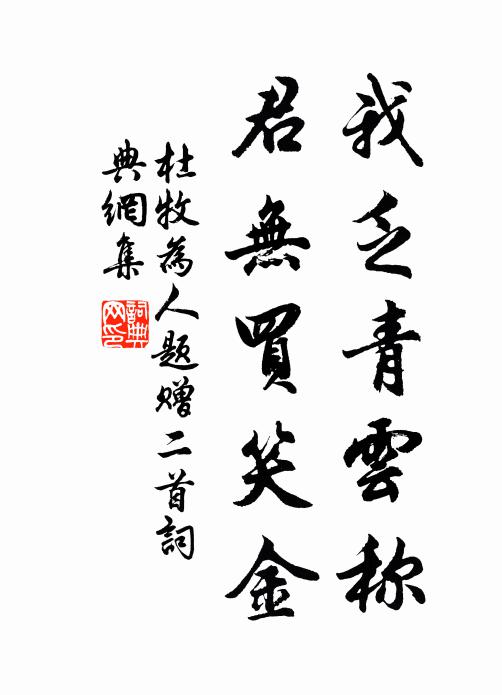 我乏青雲称
君無買笑金
杜牧為人題贈二首詞
典網集
詞典
网印